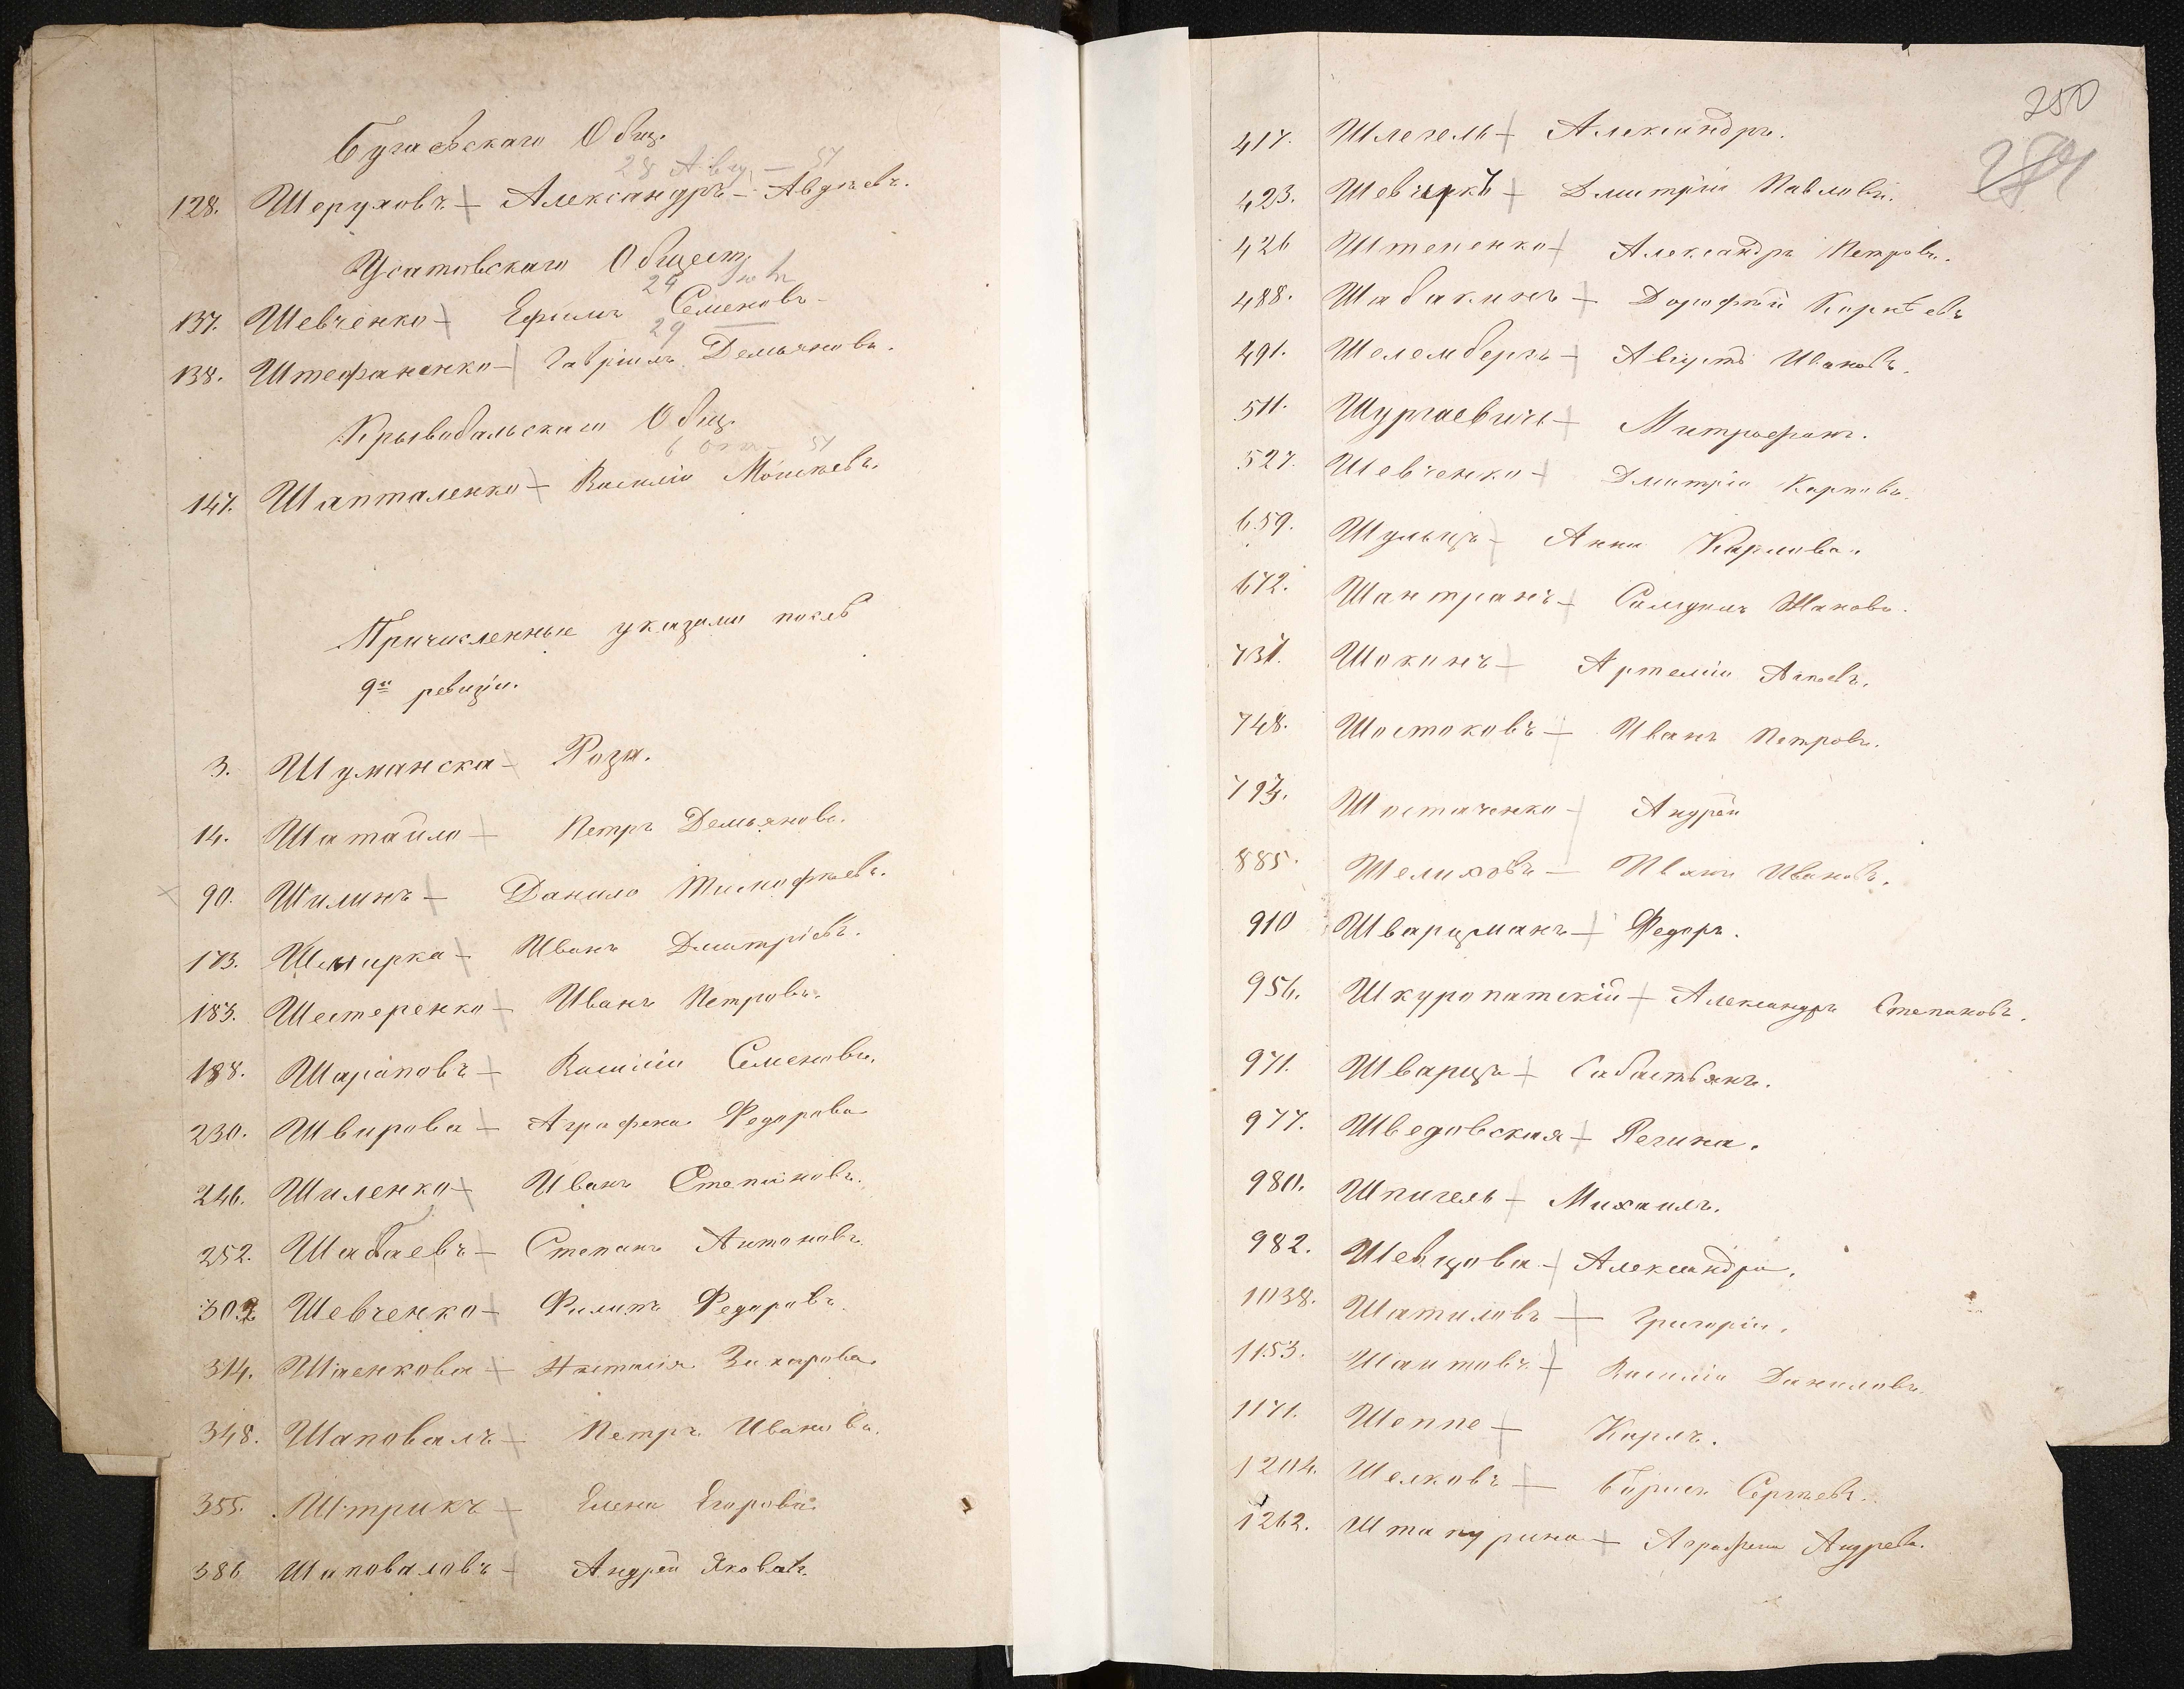 Бугаевскаго Общ.
28 Авгу — 57
128. Шеруховъ — Александръ — Авдѣевъ.
Усатовскаго Общест.
29
137. Шевченко — Ефимъ Семеновъ
29
138. Штефаненко — Гавріилъ Демьяновъ.
Крывобальскаго Общ.
6 57
147. Шапталенко — Василій Моисѣевъ.
Причисленные указами послѣ
9й ревизіи.
3. Шуманска — Роза.
14. Шатайло — Петръ Демьяновъ.
90. Шилинъ — Данило Тимофѣевъ.
173. Иванъ Дмитріевъ.
183. Шестеренко — Иванъ Петровъ.
188. Шараповъ — Василій Семеновъ.
230. Швирова — Аграфена Федорова
246. Шиленко — Иванъ Степановъ.
252. Шабаевъ — Степанъ Антоновъ.
302 Шевченко — Филипъ Федоровъ.
314. Шаенкова — Наталія Захарова.
348. Шаповалъ — Петръ Ивановъ.
355. Штрикъ — Елена Егорова.
386 Шаповаловъ — Андрей Яковлевъ.
250
417. Шлегель — Александръ.
423. Шевчукъ — Дмитрій Павловъ.
426 Штепенко — Александръ Петровъ.
488. Шабакинъ — Дорофѣй Корнѣевъ
491. Шелембергъ — Августъ Ивановъ.
511. Шургаевичъ — Митрофанъ.
527. Шевченко — Дмитрій Карповъ.
659. Шульцъ — Анна Карлова.
672. Шантранъ — Самуилъ Жановъ.
731. Шокинъ — Артемій
748. Шостаковъ — Иванъ Петровъ.
793. Шостаченко — Андрей
885. Шелиховъ — Иванъ Ивановъ.
910 Шварцманъ — Федоръ.
956. Шкуропатскій — Александръ Степановъ.
971. Шварцъ — Сабастьянъ.
977. Шведовская — Регина.
980. Шпигель — Михаилъ.
982. Шевцова — Александра.
1038. Шатиловъ — Григорій.
1153. Шаитовъ — Василій Даниловъ.
1171. Шеппе — Карлъ.
1204. Шелковъ — Борисъ Сергѣевъ.
1262. Штапурина — Аграфена Андреева.